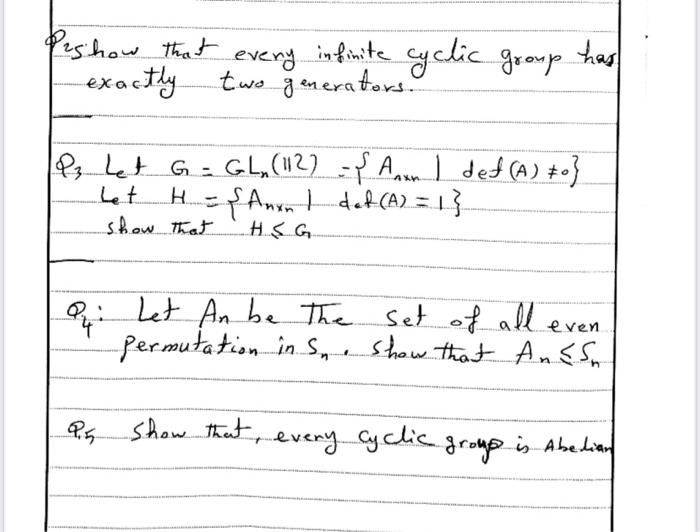 P2 show that every infinite cyclic group has
exactly two generators.
P3 Let G = GLn(112) = { Anxn | det (A) ≠0}
Let H = { Anxn | det (A) = 1 }
show that H ≤ G
Q4: Let An be the set of all even
permutation in Sn. Show that An ≤ Sn
Q5 show that, every cyclic group is Abelian